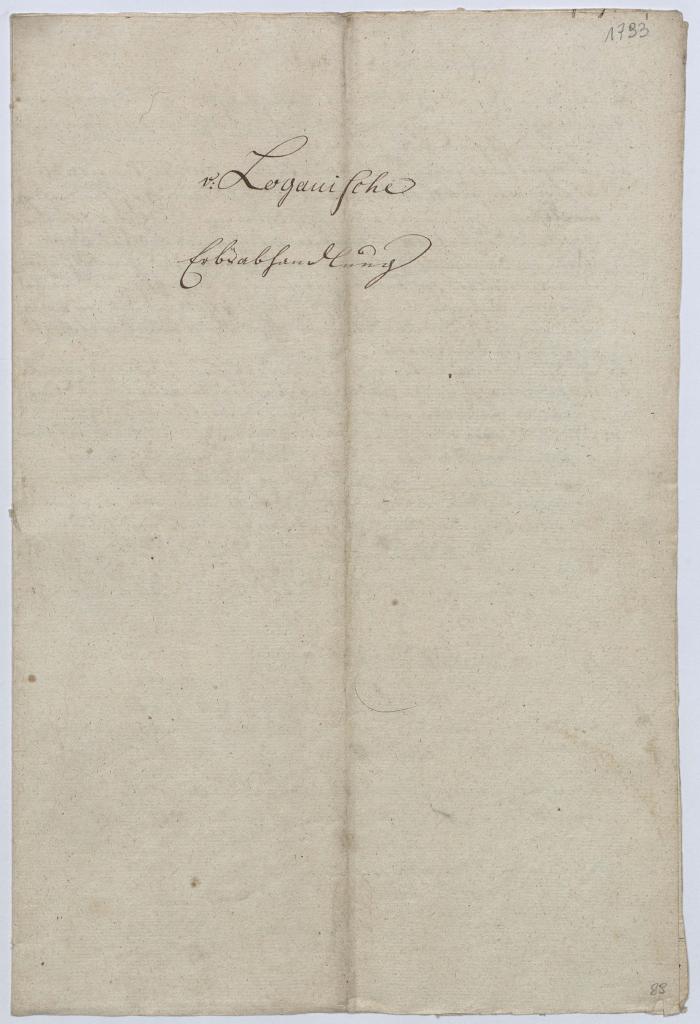 1793
v: Logauische
Erbsabhandlung
88